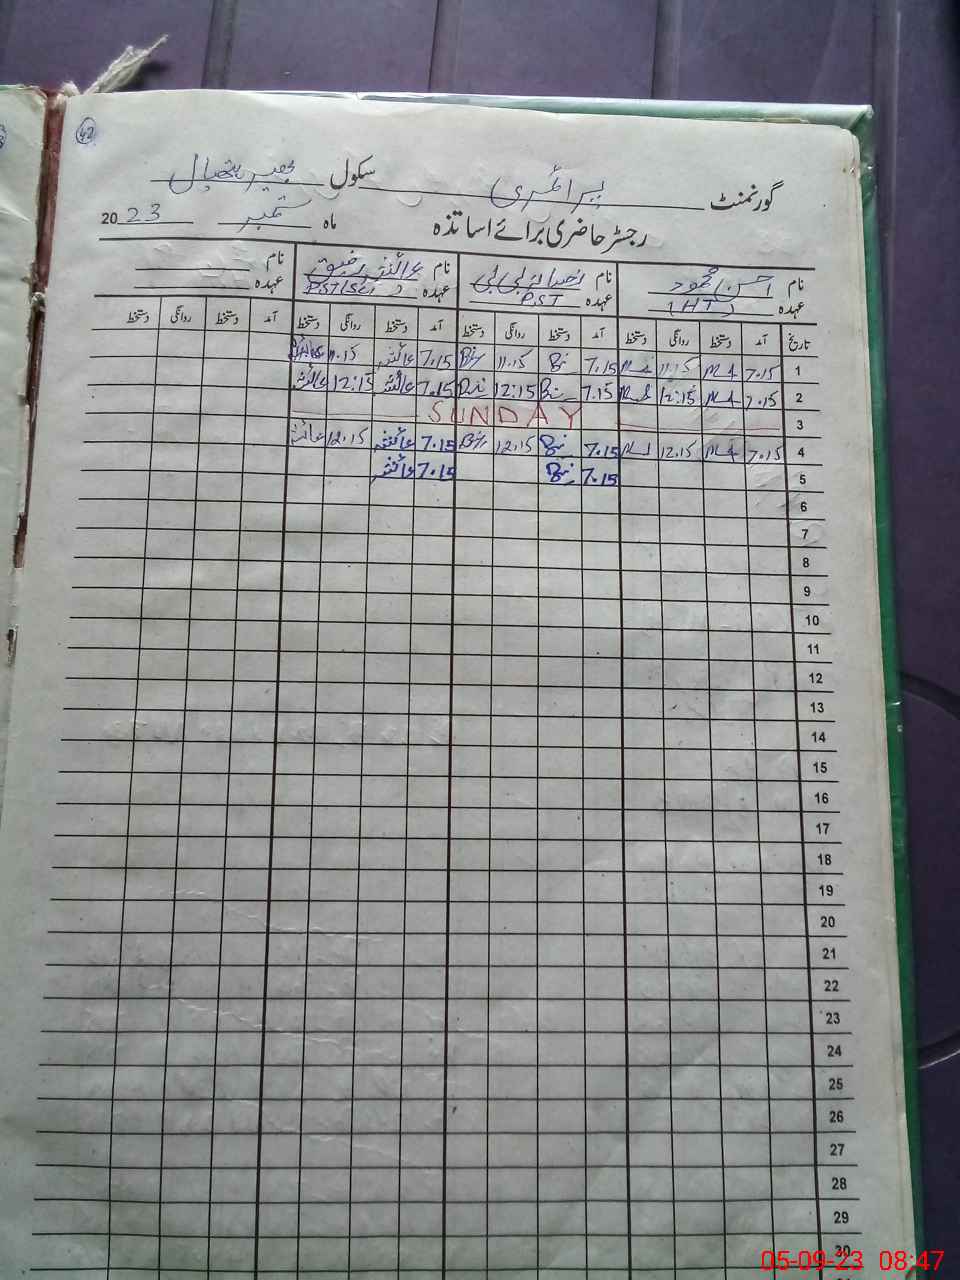 42
گورنمنٹ پرائمری سکول
رجسٹر حاضری برائے اساتذہ ماہ ستمبر 2023
نام احسن محمود نام بی بی نام عائشہ رفیق نام
عہدہ (HT) عہدہ P.S.T عہدہ عہدہ
تاریخ آمد دستخط روانگی دستخط آمد دستخط روانگی دستخط آمد دستخط روانگی دستخط آمد دستخط روانگی دستخط
1 7.15 11.15 7.15 11.15 7.15 عائشہ 11.15
2 7.15 12:15 7.15 12:15 7.15 عائشہ 12:15 عائشہ
3 SUNDAY
4 7.15 12.15 7.15 12.15 7.15 عائشہ 12.15 عائشہ
5 7.15 7.15 عائشہ
6
7
8
9
10
11
12
13
14
15
16
17
18
19
20
21
22
23
24
25
26
27
28
29
30
05-09-23 08:47